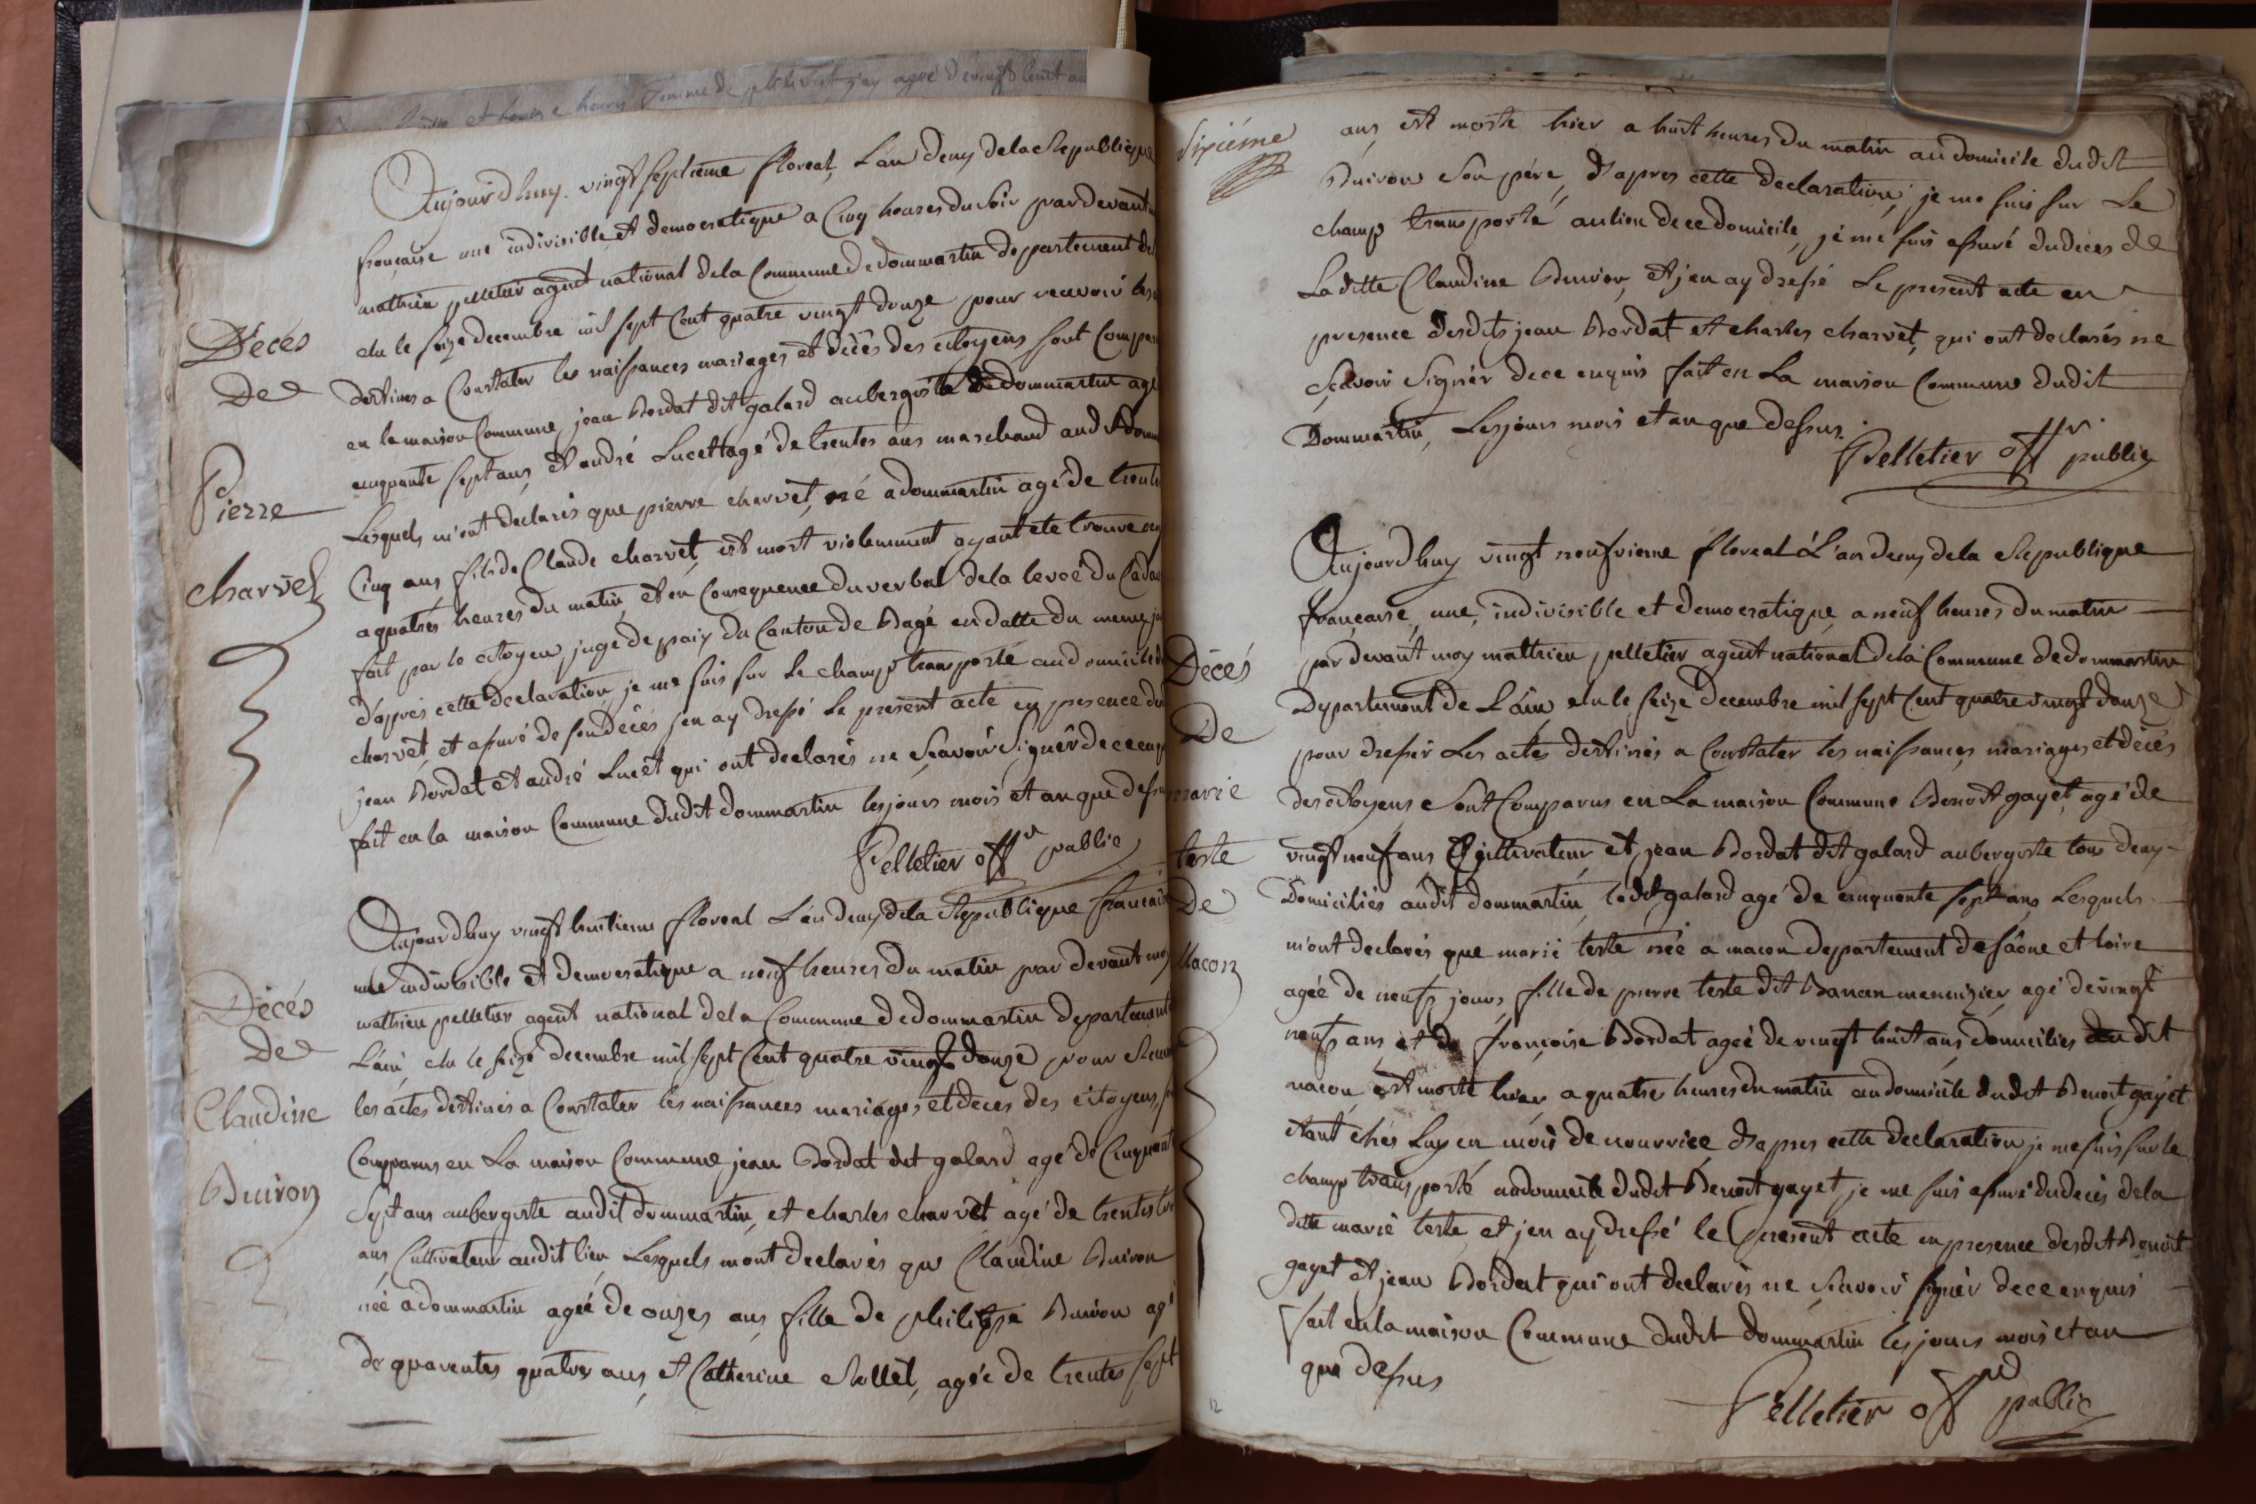 Décés
De
Pierre
charvet
Aujourdhuy vingt septieme floreal, L'an deux de la Republique
françaisse une indivisible et democratique a Cinq heures du soir pardevant
mathieu pelletier agent national de la Commune de dommartin departement de
elu le seize decembre mil sept Cent quatre vingt douze pour recevoir les
destines a Constater les naissances mariages et décés des citoyens sont Compa
en la maison Commune jean Bordat dit galard aubergiste de dommartin agé
cinquante sept ans et andré Lucet agé de trentes ans marchand audit
Lesquels m'ont declarés que pierre charvet, né a dommartin agé de trente
Cinq ans fils de Claude charvet, est mort violemment ayant ete trouve
a quatres heures du matin et en Consequence du verbal de la levee du Cada
fait par le citoyen juge de paix du Canton de Bagé en datte du meme
d'apres cette declaration je me suis sur le champ transporté au domicile
charvet et assuré de son décés j'en ay dressé le present acte en presence
jean Bordat et andré Lucet qui ont declarés ne Sçavoir Signer de ce
fait en la maison Commune dudit dommartin les jours mois et an que dessus
Pelletier offr public
Décés
De
Claudine
Buiron
Aujourdhuy vingt huitieme floreal L'an deux de la Republique français
une indivisible et democratique a neuf heures du matin par devant moy
mathieu pelletier agent national de la Commune de dommartin departement
L'ain elu le seize decembre mil sept Cent quatre vingt douze pour
les actes destinés a Constater les naissances mariages et deces des citoyens
Comparus en La maison Commune jean Bordat dit galard agé de Cinquant
Sept ans aubergiste audit dommartin, et charles charvet agé de trentes
ans Cultivateur audit lieu Lesquels m'ont declarés que Claudine Buiron
née a dommartin agée de onzes ans fille de philippe Buiron agé
de quarentes quatres ans et Catherine Rollet, agée de trentes sept
Sixiéme
ans est morte hier a huit heures du matin au domicile dudit
Buiron Son pére, D'apres cette declaration, je me suis sur Le
champ transporté au lieu de ce domicile, je me suis assuré du deces de
Laditte Claudine Buiron, et j'en ay dressé Le present acte en
presence desdits jean Bordat et charles charvet, qui ont declarés ne
Sçavoir Signér de ce enquis fait en La maison Commune dudit
Dommartin, Les jours mois et an que dessus.
Pelletier offr public
Décés
De
marie
teste
De
Macon
Aujourdhuy vingt neufvieme floreal L'an deux de la Republique
françaisse, une, indivisible et democratique a neuf heures du matin
par devant moy mathieu pelletier agent national de la Commune de dommartin
Departement de L'ain elu le seize Decembre mil sept Cent quatre vingt douze
pour dressér Les actes destinés a Constater les naissances mariages et décés
des citoyens Sont Comparus en La maison Commune Benoit gayet, agé de
vingt neuf ans Cultivateur et jean Bordat dit galard aubergiste tous deux
Domiciliés audit dommartin ledit galard agé de cinquante sept ans Lesquels
m'ont declarés que marie teste née a macon departement de saône et loire
agée de neufs jours, fille de pierre teste dit menuizier agé de vingt
neufs ans et de françoise Bordat agée de vingt huit ans domiciliés dudit
macon est morte hier a quatre heures du matin au domicile dudit Benoit gayet
etant chés Luy en mois de nourrice D'apres cette declaration je me suis sur le
champ transporté au domicile dudit Benoit gayet je me suis assuré du decés de la
ditte marie teste et j'en ay dressé le present acte en presence desdit Benoit
gayet et jean Bordat qui ont declarés ne Scavoir signér de ce enquis
fait en la maison Commune dudit dommartin les jours mois et an
que dessus
Pelletier off public
12